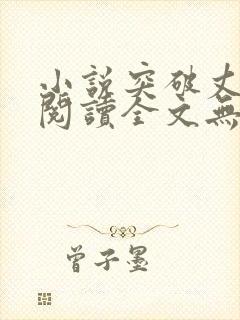 小說突破丈
閱讀全文無
曾子墨